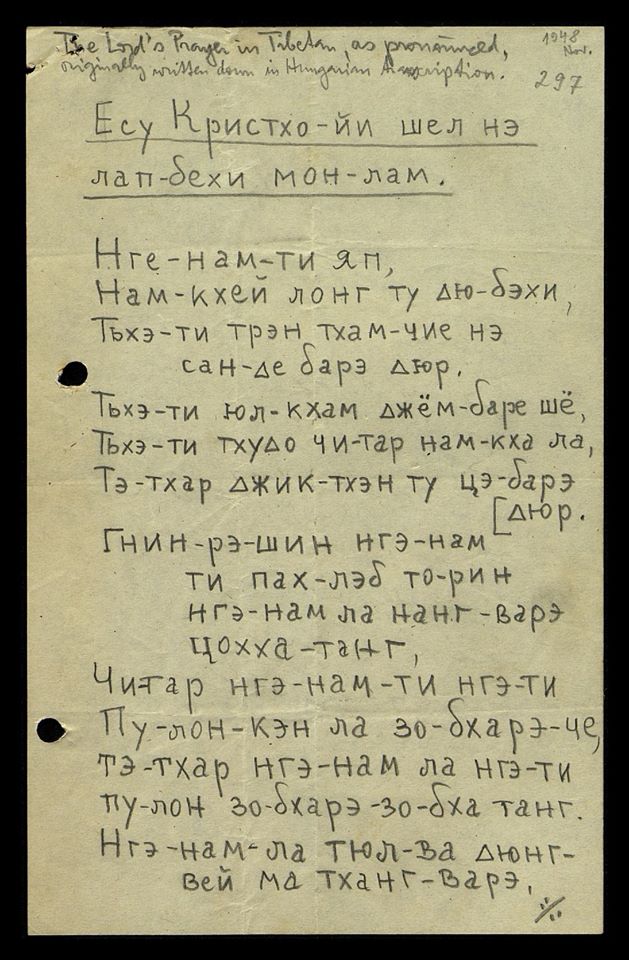 The Lord's Prayer in Tibetan, as pronounced,
originally written down in Hungarian transcription.
1948
Nov.
297
Есу Кристхо-йи шел нэ
лап-бехи мон-лам.
Нге-нам-ти яп,
Нам-кхей лонг ту дю-бэхи,
Тьхэ-ти трэн тхам-чие нэ
сан-де барэ дюр.
Тьхэ-ти юл-кхам джём-баре шё,
Тьхэ-ти тхудо чи-тар нам-кха ла,
Тэ-тхар джик-тхэн ту цэ-барэ
[дюр.
Гнин-рэ-шин нгэ-нам
ти пах-лэб то-рин
нгэ-нам ла нанг-варэ
цохха-танг,
Чи-тар нгэ-нам-ти нгэ-ти
Пу-лон-кэн ла зо-бхарэ-че,
тэ-тхар нгэ-нам ла нгэ-ти
пу-лон зо-бхарэ-зо-бха танг.
Нгэ-нам-ла тюл-ва дюнг-
вей ма тханг-варэ,
./.